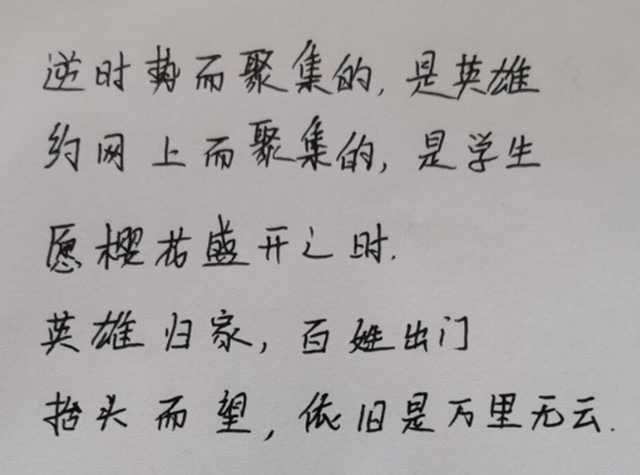 逆时势而聚集的,是英雄
约网上而聚集的,是学生
愿樱花盛开之时.
英雄归家,百姓出门
抬头而望,依旧是万里无云.